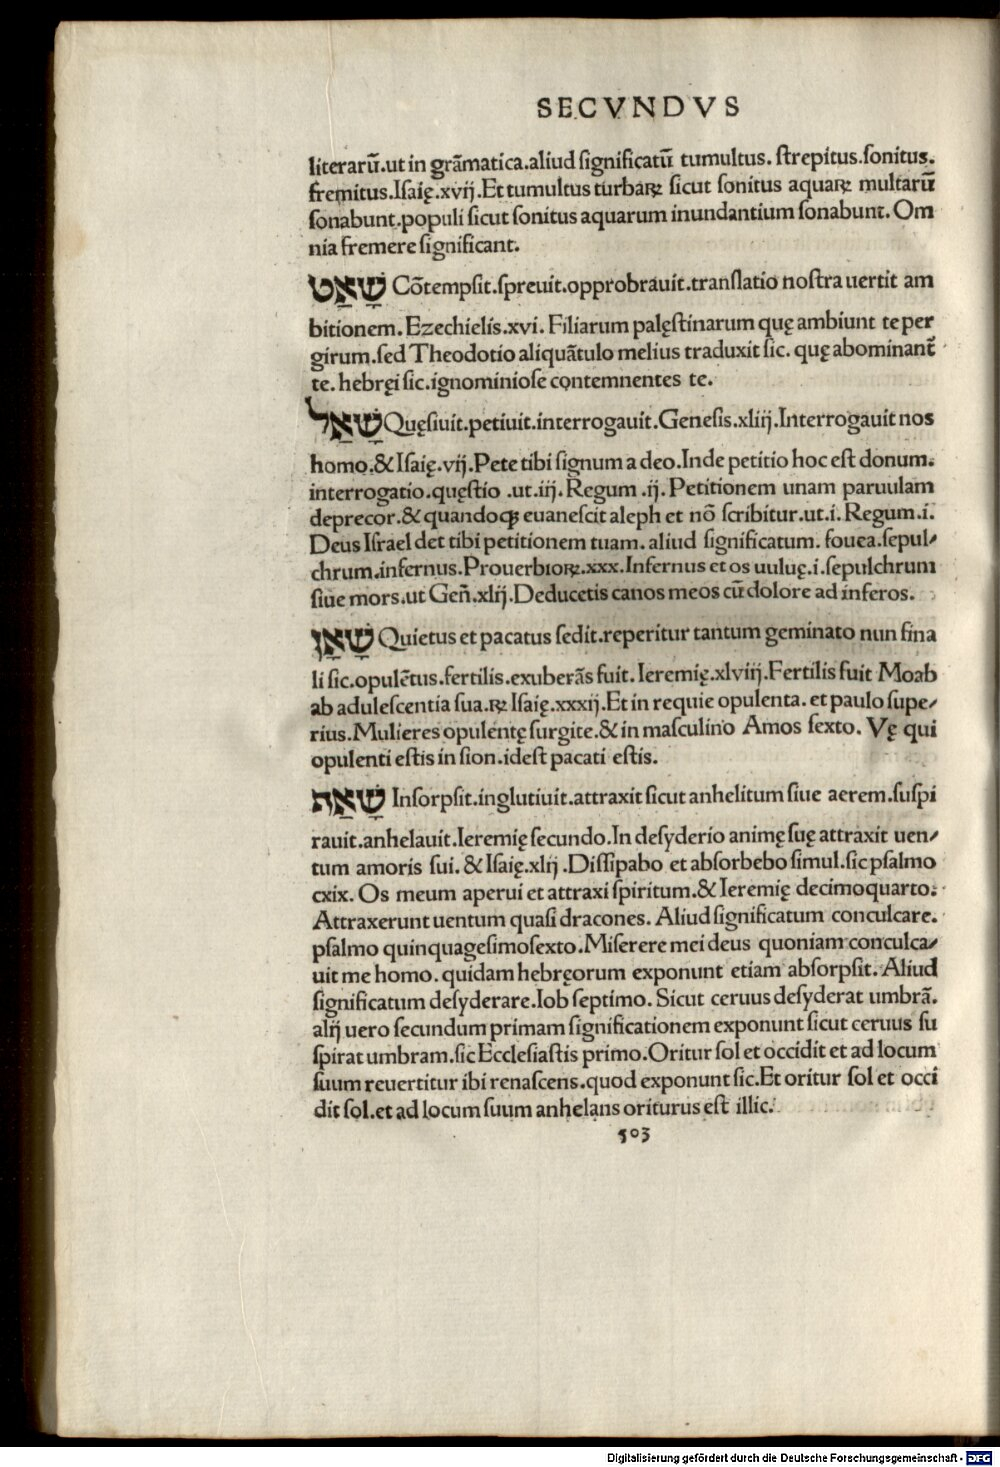 SECVNDVS
literarū.ut in grāmatica.aliud significatū tumultus. strepitus.sonitus.
fremitus.Isaię.xvij.Et tumultus turbaꝝ sicut sonitus aquaꝝ multarū
sonabunt.populi sicut sonitus aquarum inundantium sonabunt. Om
nia fremere significant.
שָׁאַט Cōtempsit.spreuit.opprobrauit.translatio nostra uertit am
bitionem. Ezechielis.xvi. Filiarum palęstinarum quę ambiunt te per
girum.sed Theodotio aliquātulo melius traduxit sic. quę abominant̄
te. hebręi sic.ignominiose contemnentes te.
שָׁאַל Quęsiuit.petiuit.interrogauit.Genesis.xliij.Interrogauit nos
homo.& Isaię.vij.Pete tibi signum a deo.Inde petitio hoc est donum.
interrogatio.quęstio .ut.iij. Regum .ij. Petitionem unam paruulam
deprecor.& quandoqꝫ euanescit aleph et nō scribitur.ut.i. Regum.i.
Deus Israel det tibi petitionem tuam. aliud significatum. fouea.sepul⸗
chrum.infernus.Prouerbioꝝ.xxx.Infernus et os uuluę.i.sepulchrum
siue mors.ut Geñ.xlij.Deducetis canos meos cū dolore ad inferos.
שָׁאַן Quietus et pacatus sedit.reperitur tantum geminato nun fina
li sic.opulētus.fertilis.exuberās fuit. Ieremię.xlviij.Fertilis fuit Moab
ab adulescentia sua.ꝝ Isaię.xxxij.Et in requie opulenta. et paulo supe⸗
rius.Mulieres opulentę surgite.& in masculino Amos sexto. Vę qui
opulenti estis in sion.idest pacati estis.
שָׁאַף Insorpsit.inglutiuit.attraxit sicut anhelitum siue aerem.suspi
rauit.anhelauit.Ieremię secundo.In desyderio animę suę attraxit uen⸗
tum amoris sui. & Isaię.xlij .Dissipabo et absorbebo simul.sic psalmo
cxix. Os meum aperui et attraxi spiritum.& Ieremię decimoquarto.
Attraxerunt uentum quasi dracones. Aliud significatum conculcare.
psalmo quinquagesimosexto.Miserere mei deus quoniam conculca⸗
uit me homo. quidam hebręorum exponunt etiam absorpsit. Aliud
significatum desyderare.Iob septimo. Sicut ceruus desyderat umbrā.
alij uero secundum primam significationem exponunt sicut ceruus su
spirat umbram.sic Ecclesiastis primo.Oritur sol et occidit et ad locum
suum reuertitur ibi renascens.quod exponunt sic.Et oritur sol et occi
dit sol.et ad locum suum anhelans oriturus est illic.
503
Digitalisierung gefördert durch die Deutsche Forschungsgemeinschaft - DFG